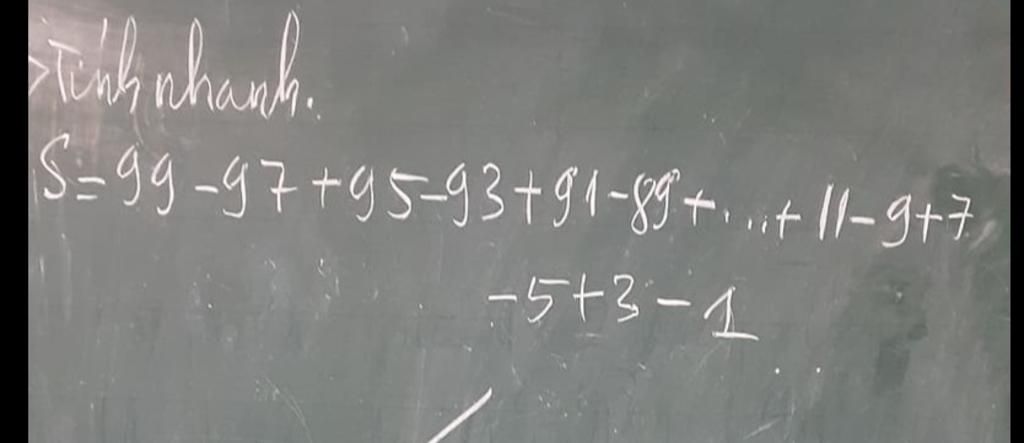 > Tính nhanh.
S = 99 - 97 + 95 - 93 + 91 - 89 + ... + 11 - 9 + 7
- 5 + 3 - 1